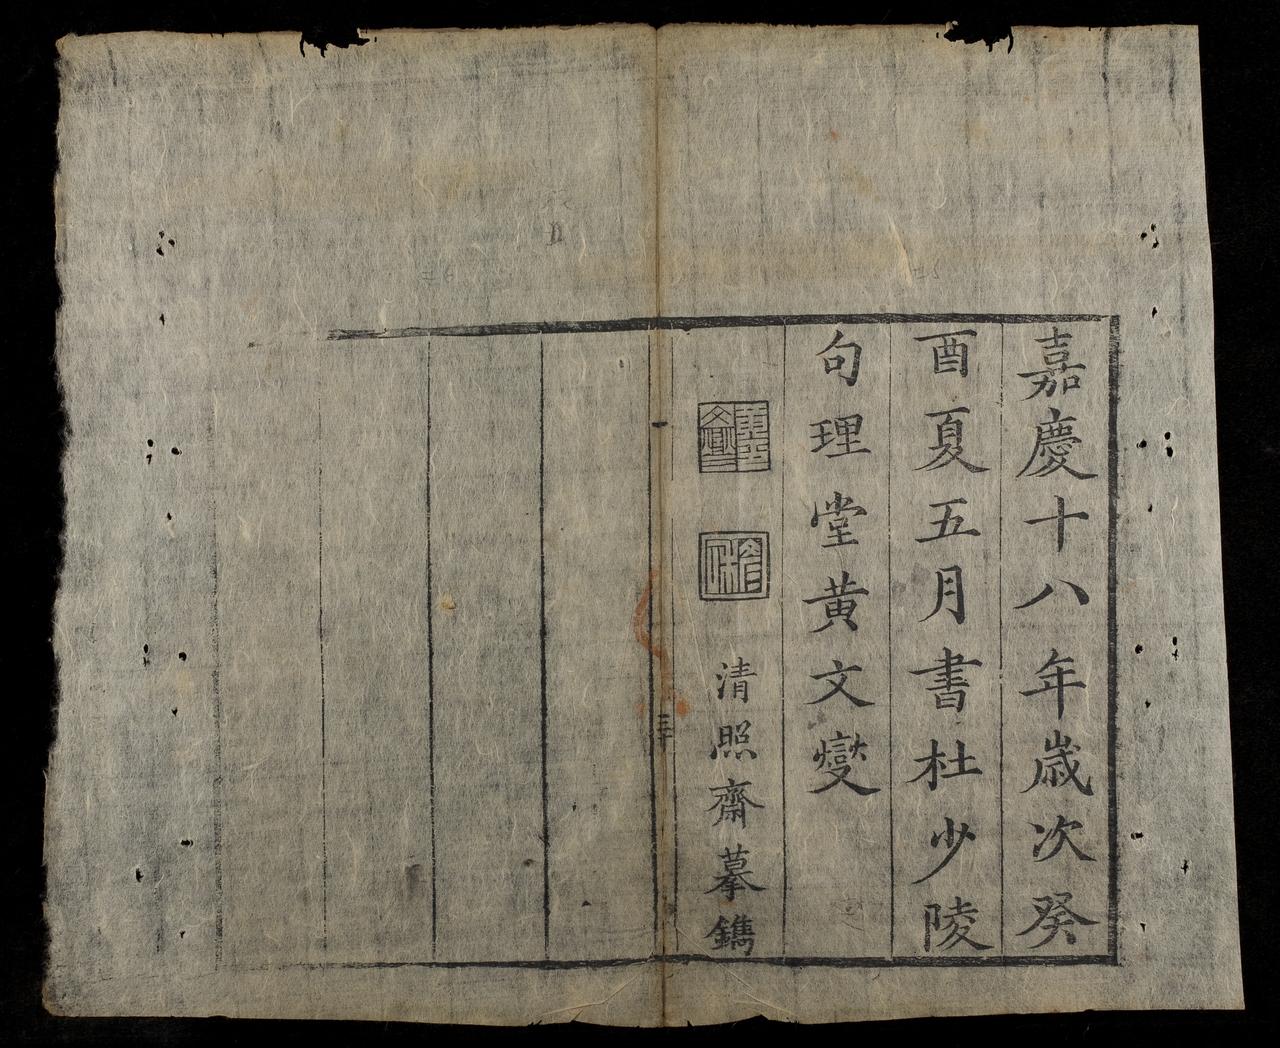 嘉慶十八年歲次癸
酉夏五月書杜少陵
句理堂黃文燮
清照齋摹鐫
三十